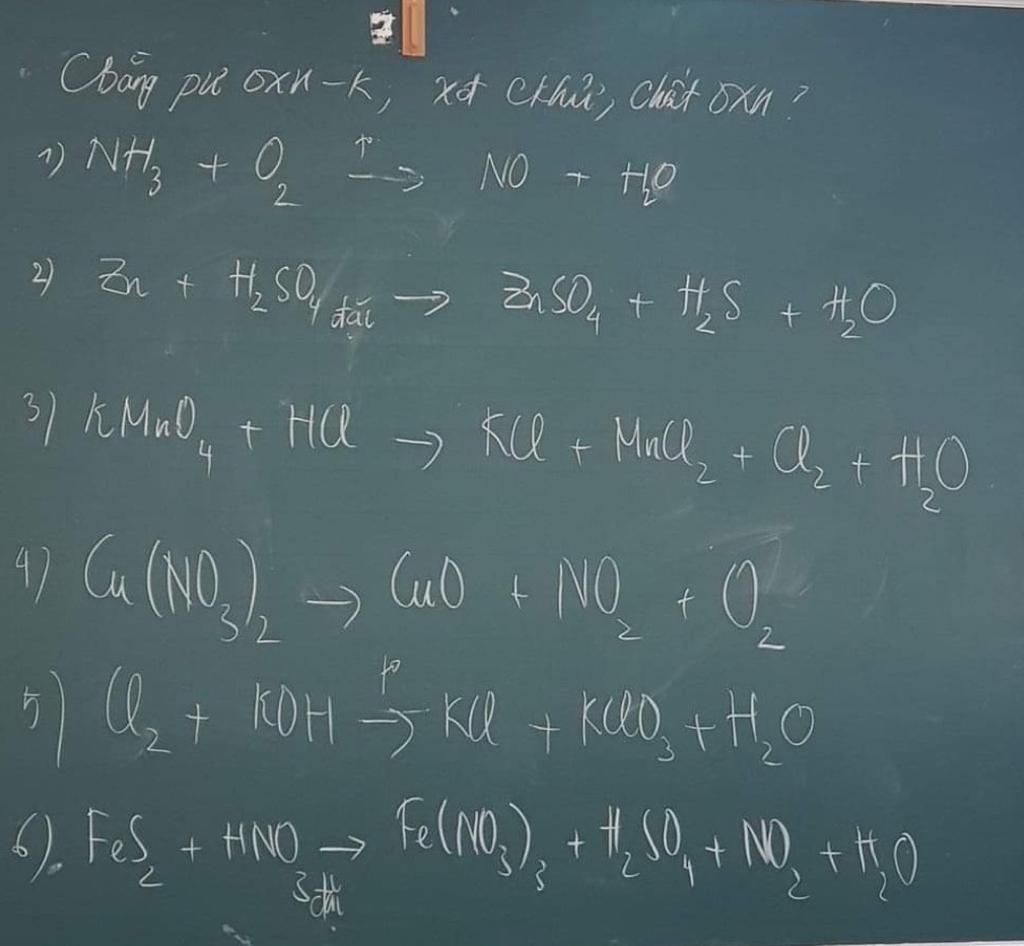 Cbằng pư oxh-k, xđ ckhử, chất oxh?
1) NH₃ + O₂ →t° NO + H₂O
2) Zn + H₂SO₄ đặc → ZnSO₄ + H₂S + H₂O
3) KMnO₄ + HCl → KCl + MnCl₂ + Cl₂ + H₂O
4) Cu(NO₃)₂ → CuO + NO₂ + O₂
5) Cl₂ + KOH →t° KCl + KClO₃ + H₂O
6). FeS₂ + HNO₃ đặc → Fe(NO₃)₃ + H₂SO₄ + NO₂ + H₂O